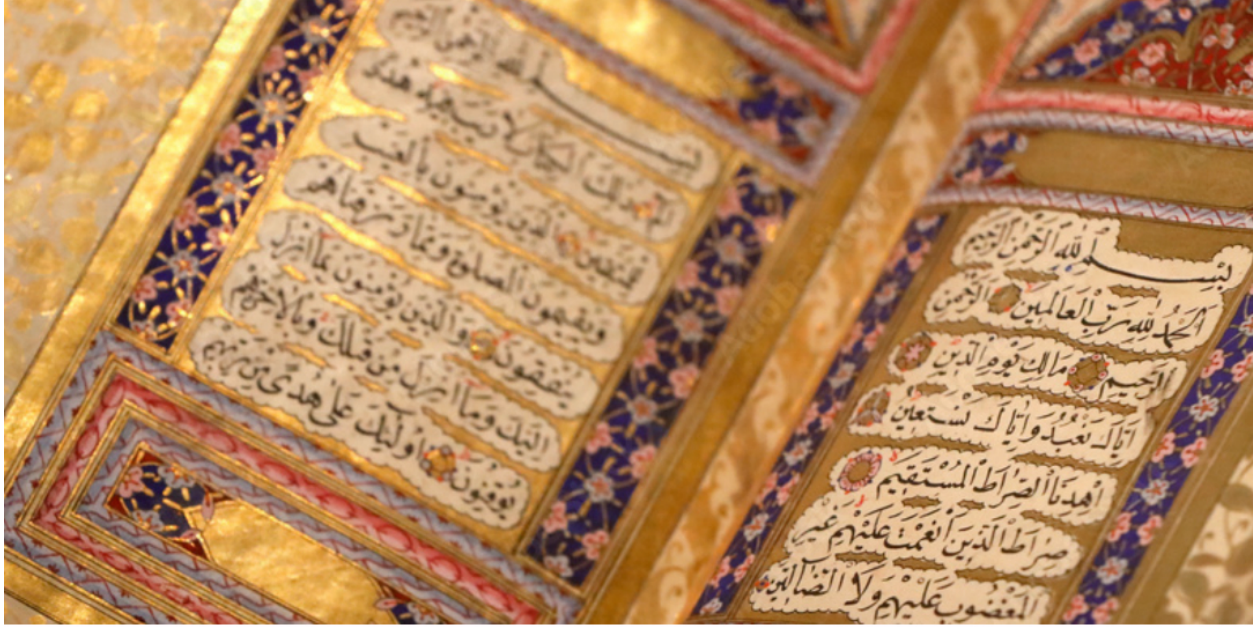 بِسْمِ اللهِ الرَّحْمٰنِ الرَّحِيمِ
الْحَمْدُ لِلهِ رَبِّ الْعَالَمِينَ الرَّحْمٰنِ
الرَّحِيمِ مَالِكِ يَوْمِ الدِّينِ
اِيَّاكَ نَعْبُدُ وَاِيَّاكَ نَسْتَعِينُ
اهْدِنَا الصِّرَاطَ الْمُسْتَقِيمَ
صِرَاطَ الَّذِينَ اَنْعَمْتَ عَلَيْهِمْ غَيْرِ
الْمَغْضُوبِ عَلَيْهِمْ وَلَا الضَّالِّينَ
بسم الله الرحمن الرحيم
الم ذلك الكتاب لا ريب فيه هدى
للمتقين الذين يؤمنون بالغيب
ويقيمون الصلوة ومما رزقناهم
ينفقون والذين يؤمنون بما انزل
اليك وما انزل من قبلك وبالاخرة هم
يوقنون اولئك على هدى من ربهم